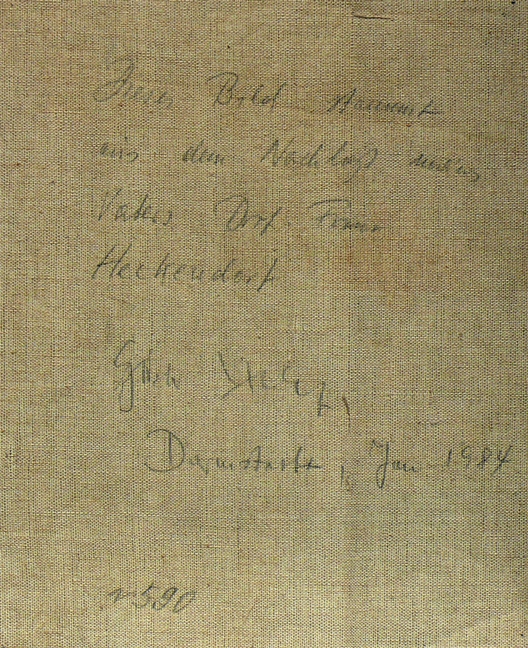 Dieses Bild stammt
aus dem Nachlaß meines
Vaters Prof. Franz
Heckendorf
Darmstadt, Jan 1984
590